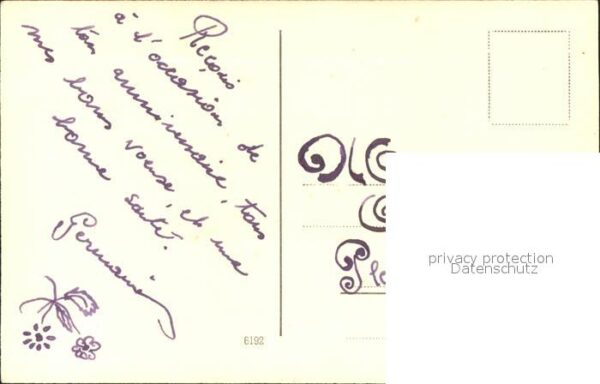 Reçois
à l'occasion de
ton anniversaire, tous
mes bons voeux, et une
bonne santé.
Germaine
6192
privacy protection
Datenschutz